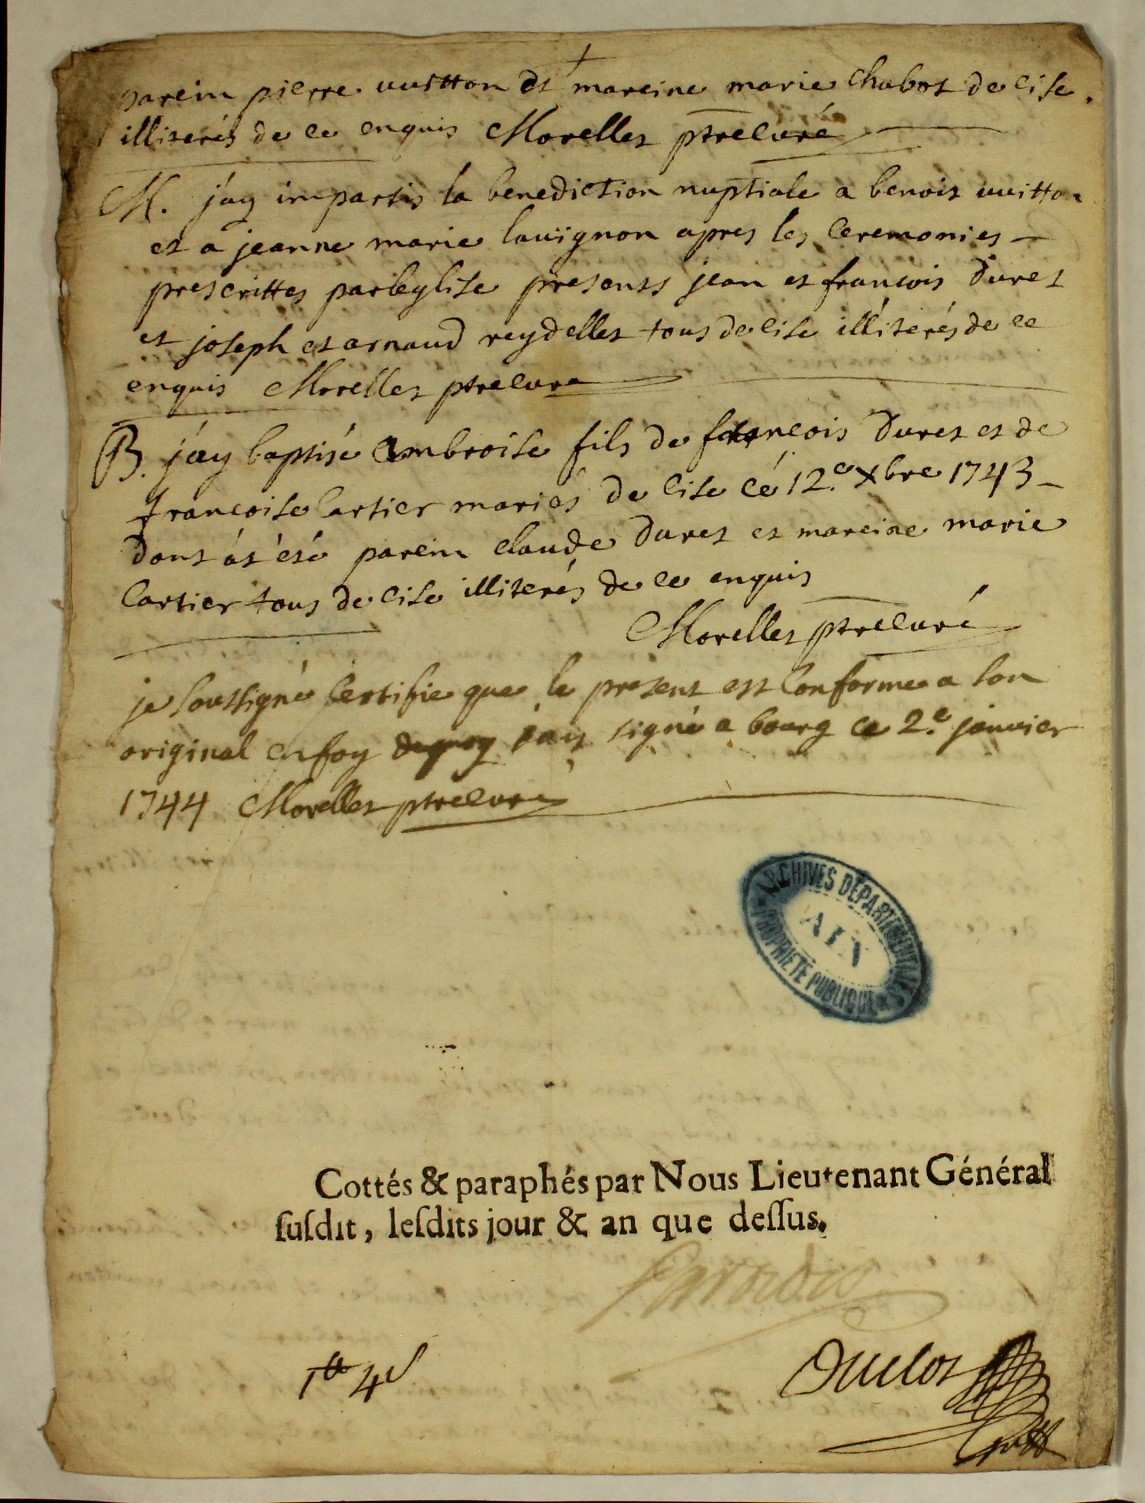 parein pierre vuitton et mareine marie Chabot de Cise.
illiterés de ce enquis Morellet ptrecuré
M. j'ay impartis la benediction nuptiale a benoit vuitton
et a jeanne marie lauignon apres les Ceremonies
prescrittes parleglise presents jean et francois Duret
et joseph et arnaud reydellet tous de Cise illiterés de ce
enquis Morellet ptrecure
B. j'ay baptisé Ambroise fils de francois Duret et de
francoise Cartier mariés de Cise cé 12.e Xbre 1743
Dont at été parein Claude Duret et mareine marie
Cartier tous de Cise illiterés de ce enquis
Morellet ptrecuré
je soussigné Certifie que le présent est Conforme a son
original en foy dequoy j'ay signé a bourg ce 2.e janvier
1744 Morellet ptrecuré
ARCHIVES DÉPARTEMENTALES
AIN
PROPRIÉTÉ PUBLIQUE
Cottés & paraphés par Nous Lieutenant Général
ſuſdit, leſdits jour & an que deſſus.
Duclos